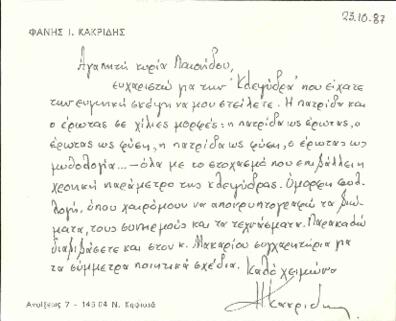 23.10.87
ΦΑΝΗΣ Ι. ΚΑΚΡΙΔΗΣ
Αγαπητή κυρία Παιονίδου,
ευχαριστώ για την 'Κλεψύδρα' που είχατε
την ευγενική σκέψη να μου στείλετε. Η πατρίδα και
ο έρωτας σε χίλιες μορφές: η πατρίδα ως έρωτας, ο
έρωτας ως φύση, η πατρίδα ως φύση, ο έρωτας ως
μυθολογία... – όλα με το στοχασμό που επιβάλλει η
χρονική παράμετρο της κλεψύδρας. Όμορφη συλ-
λογή, όπου χαιρόμουν να αποκρυπτογραφώ τα βιώ-
ματα, τους συνειρμούς και τα τεχνάσματα. Παρακαλώ
διαβιβάσετε και στον κ. Μακαρίου συγχαρητήρια για
τα σύμμετρα ποιητικά σχέδια. Καλό χειμώνα
ΦΚακριδης
Ανοίξεως 7 - 145 64 Ν. Κηφισιά